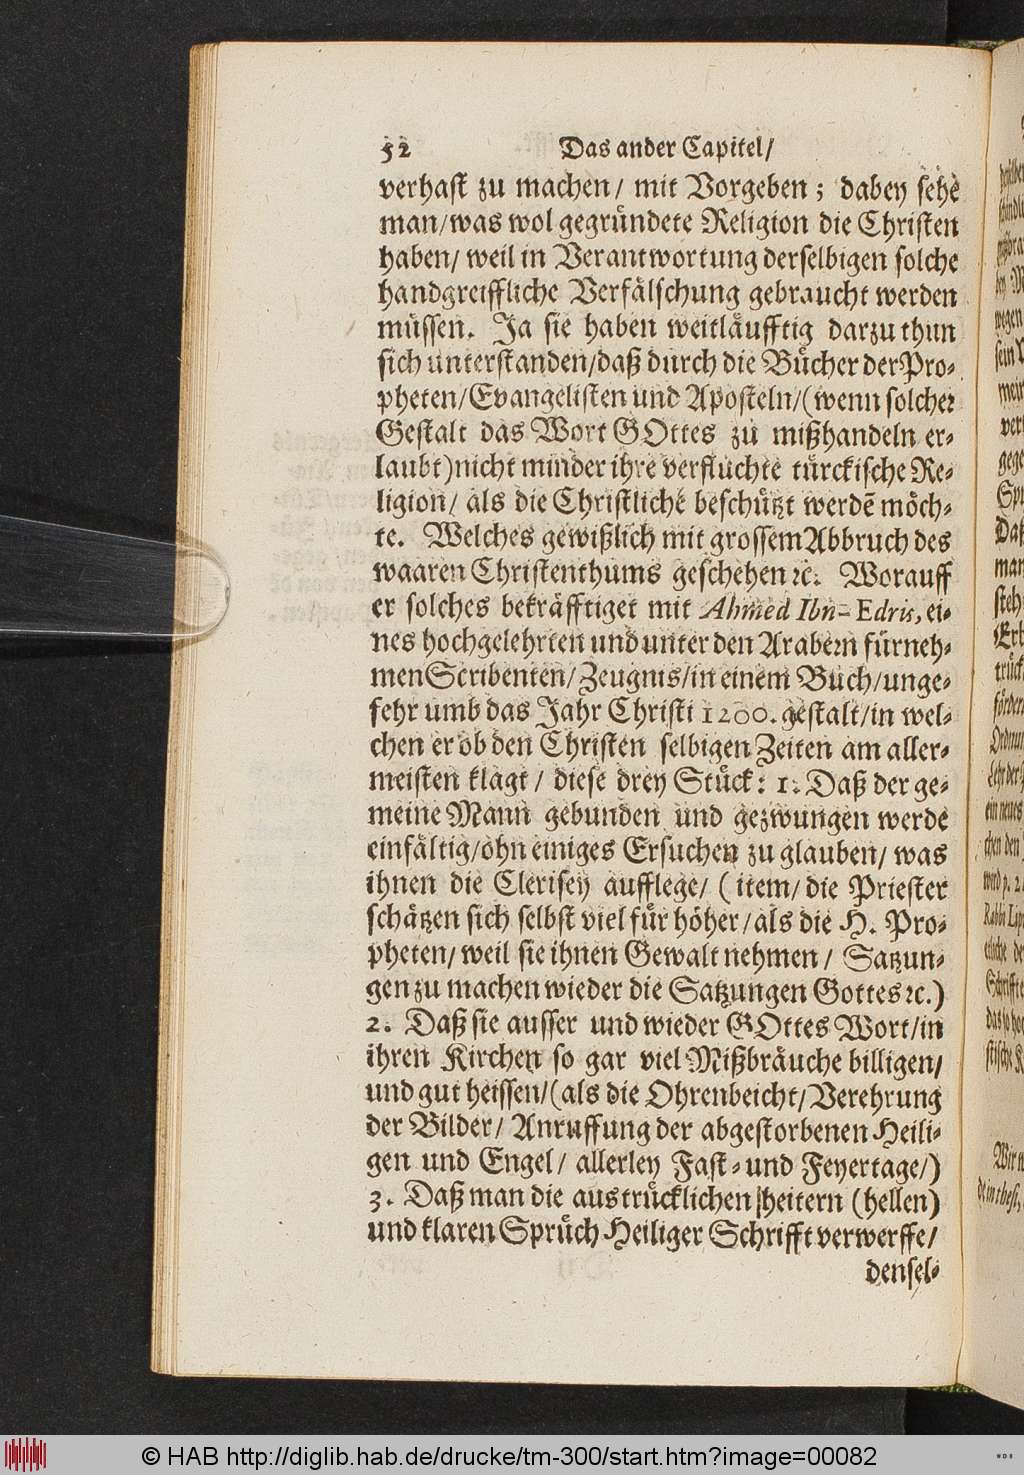 52 Das ander Capitel/
verhast zu machen/ mit Vorgeben; dabey sehē
man/was wol gegründete Religion die Christen
haben/ weil in Verantwortung derselbigen solche
handgreiffliche Verfälschung gebraucht werden
müssen. Ja sie haben weitläufftig darzu thun
sich unterstanden/daß durch die Bücher der Pro-
pheten/Evangelisten und Aposteln/(wenn solcher
Gestalt das Wort GOttes zu mißhandeln er-
laubt)nicht minder ihre verfluchte türckische Re-
ligion/ als die Christlichē beschützt werdē möch-
te. Welches gewißlich mit grossem Abbruch des
waaren Christenthums geschehen ꝛc. Worauff
er solches bekräfftiget mit Ahmed Ibn-Edris, ei-
nes hochgelehrten und unter den Arabern fürneh-
men Scribenten/Zeugnis/in einem Buch/unge-
fehr umb das Jahr Christi 1200. gestalt/in wel-
chen er ob den Christen selbigen Zeiten am aller-
meisten klagt/ diese drey Stück: 1. Daß der ge-
meine Mann gebunden und gezwungen werde
einfältig/ohn einiges Ersuchen zu glauben/ was
ihnen die Clerisey aufflege/ (item/ die Priester
schätzen sich selbst viel für höher/als die H. Pro-
pheten/ weil sie ihnen Gewalt nehmen/ Satzun-
gen zu machen wieder die Satzungen Gottes ꝛc.)
2. Daß sie ausser und wieder GOttes Wort/in
ihren Kirchen so gar viel Mißbräuche billigen/
und gut heissen/(als die Ohrenbeicht/Verehrung
der Bilder/ Anruffung der abgestorbenen Heili-
gen und Engel/ allerley Fast- und Feyertage/)
3. Daß man die austrücklichen/heitern (hellen)
und klaren Sprüch Heiliger Schrifft verwerffe/
densel-
© HAB http://diglib.hab.de/drucke/tm-300/start.htm?image=00082